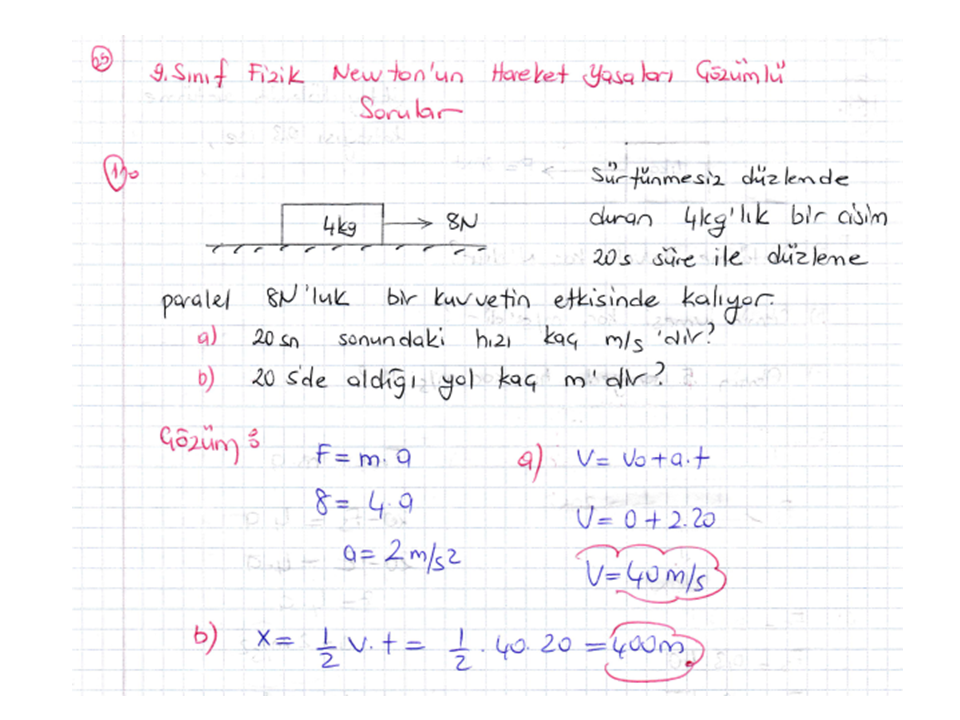 9. Sınıf Fizik Newton'un Hareket Yasaları Çözümlü
Sorular
1)
4kg
8N
Sürtünmesiz düzlende
duran 4kg'lık bir cisim
20s süre ile düzleme
paralel 8N'luk bir kuvvetin etkisinde kalıyor.
a) 20 sn sonundaki hızı kaç m/s 'dir?
b) 20 s'de aldığı yol kaç m'dir?
Çözüm:
F = m.a
8 = 4.a
a = 2 m/s2
a) V = Vo + a.t
V = 0 + 2.20
V = 40 m/s
b) X = 1/2 V.t = 1/2 . 40.20 = 400m